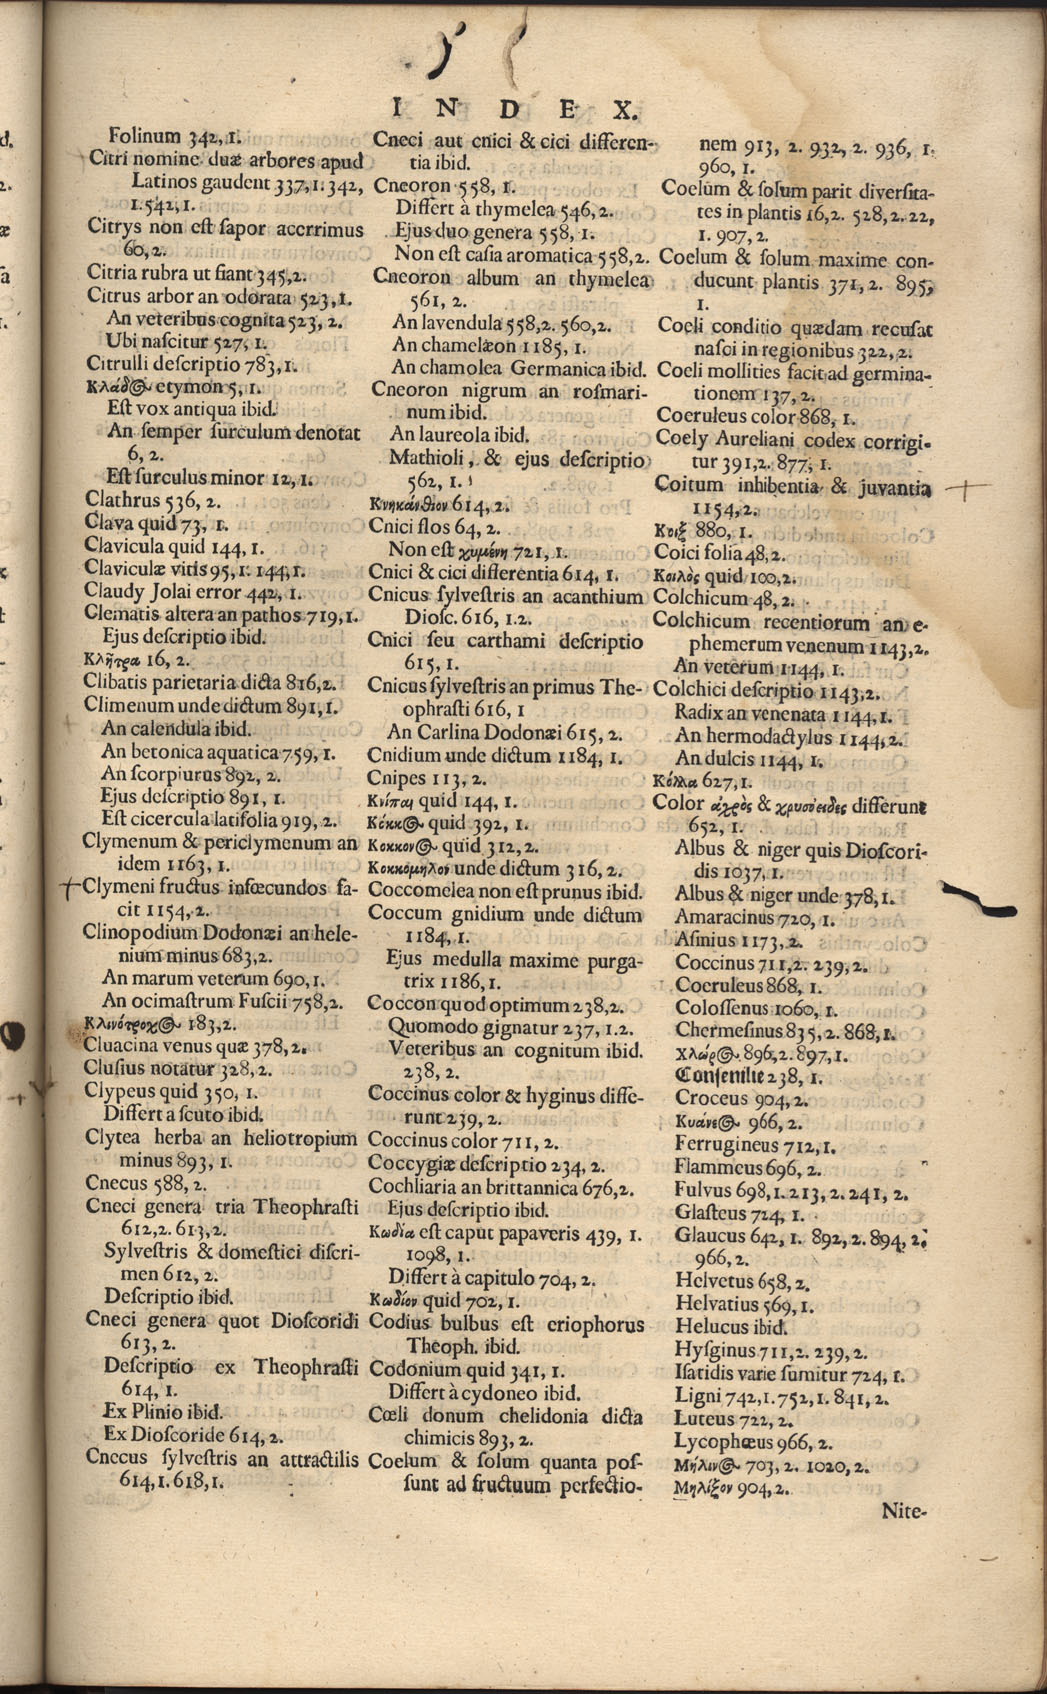 INDEX.
Folinum 342, 1.
Citri nomine duæ arbores apud
Latinos gaudent 337, 1. 342,
1. 542, 1.
Citrys non est sapor acerrimus
60, 2.
Citria rubra ut fiant 345, 2.
Citrus arbor an odorata 523, 1.
An veteribus cognita 523, 2.
Ubi nascitur 527, 1.
Citrulli descriptio 783, 1.
Κλάδ etymon 5, 1.
Est vox antiqua ibid.
An semper surculum denotat
6, 2.
Est surculus minor 12, 1.
Clathrus 536, 2.
Clava quid 73, 1.
Clavicula quid 144, 1.
Claviculæ vitis 95, 1. 144, 1.
Claudy Jolai error 442, 1.
Clematis altera an pathos 719, 1.
Ejus descriptio ibid.
Κλῆτρα 16, 2.
Clibatis parietaria dicta 816, 2.
Climenum unde dictum 891, 1.
An calendula ibid.
An betonica aquatica 759, 1.
An scorpiurus 892, 2.
Ejus descriptio 891, 1.
Est cicercula latifolia 919, 2.
Clymenum & periclymenum an
idem 1163, 1.
Clymeni fructus infœcundos fa-
cit 1154, 2.
Clinopodium Dodonæi an hele-
nium minus 683, 2.
An marum veterum 690, 1.
An ocimastrum Fuscii 758, 2.
Κλινότροχ 183, 2.
Cluacina venus quæ 378, 2.
Clusius notatur 328, 2.
Clypeus quid 350, 1.
Differt a scuto ibid.
Clytea herba an heliotropium
minus 893, 1.
Cnecus 588, 2.
Cneci genera tria Theophrasti
612, 2. 613, 2.
Sylvestris & domestici discri-
men 612, 2.
Descriptio ibid.
Cneci genera quot Dioscoridi
613, 2.
Descriptio ex Theophrasti
614, 1.
Ex Plinio ibid.
Ex Dioscoride 614, 2.
Cnecus sylvestris an attractilis
614, 1. 618, 1.
Cneci aut cnici & cici differen-
tia ibid.
Cneoron 558, 1.
Differt à thymelea 546, 2.
Ejus duo genera 558, 1.
Non est casia aromatica 558, 2.
Cneoron album an thymelea
561, 2.
An lavendula 558, 2. 560, 2.
An chamelæon 1185, 1.
An chamolea Germanica ibid.
Cneoron nigrum an rosmari-
num ibid.
An laureola ibid.
Mathioli, & ejus descriptio
562, 1.
Κνηκάνθιον 614, 2.
Cnici flos 64, 2.
Non est χυμένη 721, 1.
Cnici & cici differentia 614, 1.
Cnicus sylvestris an acanthium
Diosc. 616, 1. 2.
Cnici seu carthami descriptio
615, 1.
Cnicus sylvestris an primus The-
ophrasti 616, 1
An Carlina Dodonæi 615, 2.
Cnidium unde dictum 1184, 1.
Cnipes 113, 2.
Κνίπαι quid 144, 1.
Κόκκ quid 392, 1.
Κοκκον quid 312, 2.
Κοκκομηλον unde dictum 316, 2.
Coccomelea non est prunus ibid.
Coccum gnidium unde dictum
1184, 1.
Ejus medulla maxime purga-
trix 1186, 1.
Coccon quod optimum 238, 2.
Quomodo gignatur 237, 1. 2.
Veteribus an cognitum ibid.
238, 2.
Coccinus color & hyginus diffe-
runt 239, 2.
Coccinus color 711, 2.
Coccygiæ descriptio 234, 2.
Cochliaria an brittannica 676, 2.
Ejus descriptio ibid.
Κωδία est caput papaveris 439, 1.
1098, 1.
Differt à capitulo 704, 2.
Κωδίον quid 702, 1.
Codius bulbus est eriophorus
Theoph. ibid.
Codonium quid 341, 1.
Differt à cydoneo ibid.
Cœli donum chelidonia dicta
chimicis 893, 2.
Coelum & solum quanta pos-
sunt ad fructuum perfectio-
nem 913, 2. 932, 2. 936, 1.
960, 1.
Coelum & solum parit diversita-
tes in plantis 16, 2. 528, 2. 22,
1. 907, 2.
Coelum & solum maxime con-
ducunt plantis 371, 2. 895,
1.
Coeli conditio quædam recusat
nasci in regionibus 322, 2.
Coeli mollities facit ad germina-
tionem 137, 2.
Coeruleus color 868, 1.
Coely Aureliani codex corrigi-
tur 391, 2. 877, 1.
Coitum inhibentia & juvantia
1154, 2.
Κοιξ 880, 1.
Coici folia 48, 2.
Κοιλὸς quid 100, 2.
Colchicum 48, 2.
Colchicum recentiorum an e-
phemerum venenum 1143, 2.
An veterum 1144, 1.
Colchici descriptio 1143, 2.
Radix an venenata 1144, 1.
An hermodactylus 1144, 2.
An dulcis 1144, 1.
Κόλλα 627, 1.
Color ὠχρὸς & χρυσοειδες differunt
652, 1.
Albus & niger quis Dioscori-
dis 1037, 1.
Albus & niger unde 378, 1.
Amaracinus 720, 1.
Asinius 1173, 2.
Coccinus 711, 2. 239, 2.
Coeruleus 868, 1.
Colossenus 1060, 1.
Chermesinus 835, 2. 868, 1.
χλώρ 896, 2. 897, 1.
Consenilie 238, 1.
Croceus 904, 2.
Κυάνε 966, 2.
Ferrugineus 712, 1.
Flammeus 696, 2.
Fulvus 698, 1. 213, 2. 241, 2.
Glasteus 724, 1.
Glaucus 642, 1. 892, 2. 894, 2.
966, 2.
Helvetus 658, 2.
Helvatius 569, 1.
Helucus ibid.
Hysginus 711, 2. 239, 2.
Isatidis varie sumitur 724, 1.
Ligni 742, 1. 752, 1. 841, 2.
Luteus 722, 2.
Lycophœus 966, 2.
Μήλιν 703, 2. 1020, 2.
Μηλίξον 904, 2.
Nite-